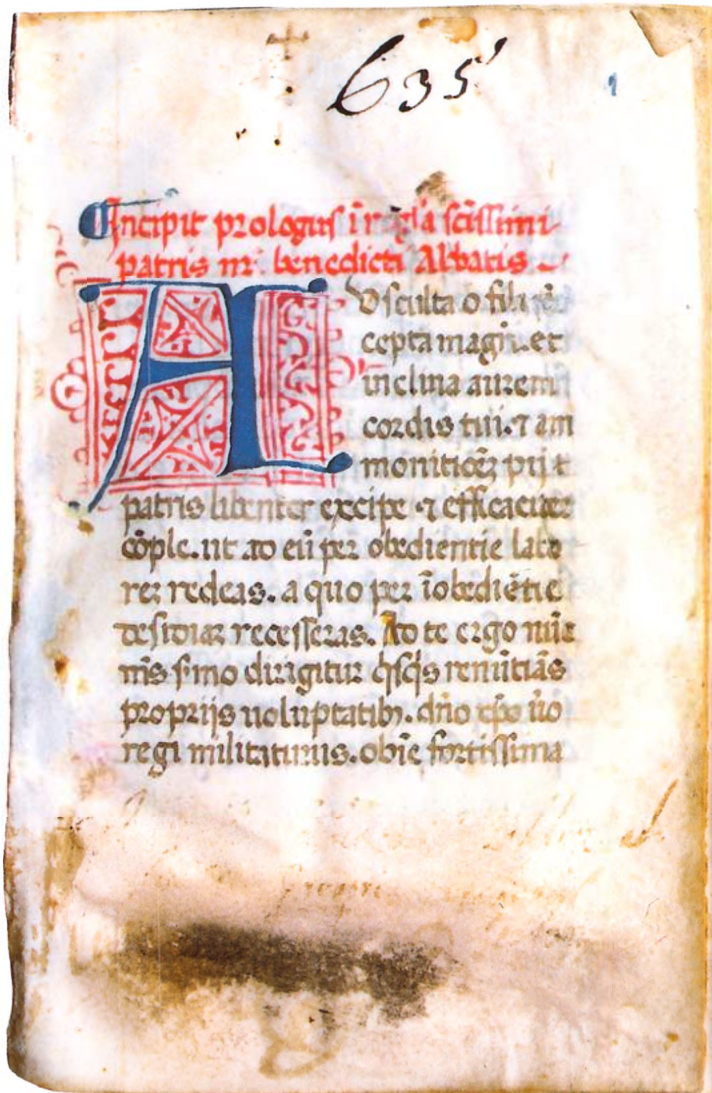 635
1
Incipit prologus ī regl̄a sc̄issimi
patris nr̄i benedicti Abbatis
AUsculta o fili p̄
cepta magr̄i. et
inclina aurem
cordis tui. ⁊ am
monitioēz pij
patris libenter excipe. ⁊ efficaciter
cōple. ut ad eū per obedientie labo
rez redeas. a quo per īobediētie
desidiaz recesseras. Ad te ergo nūc
m̄s s̓mo dirigitur q̓sq̓s renūtiās
proprijs uoluptatibꝫ. dn̄o xp̄o ūo
regi militaturus. obiē fortissima